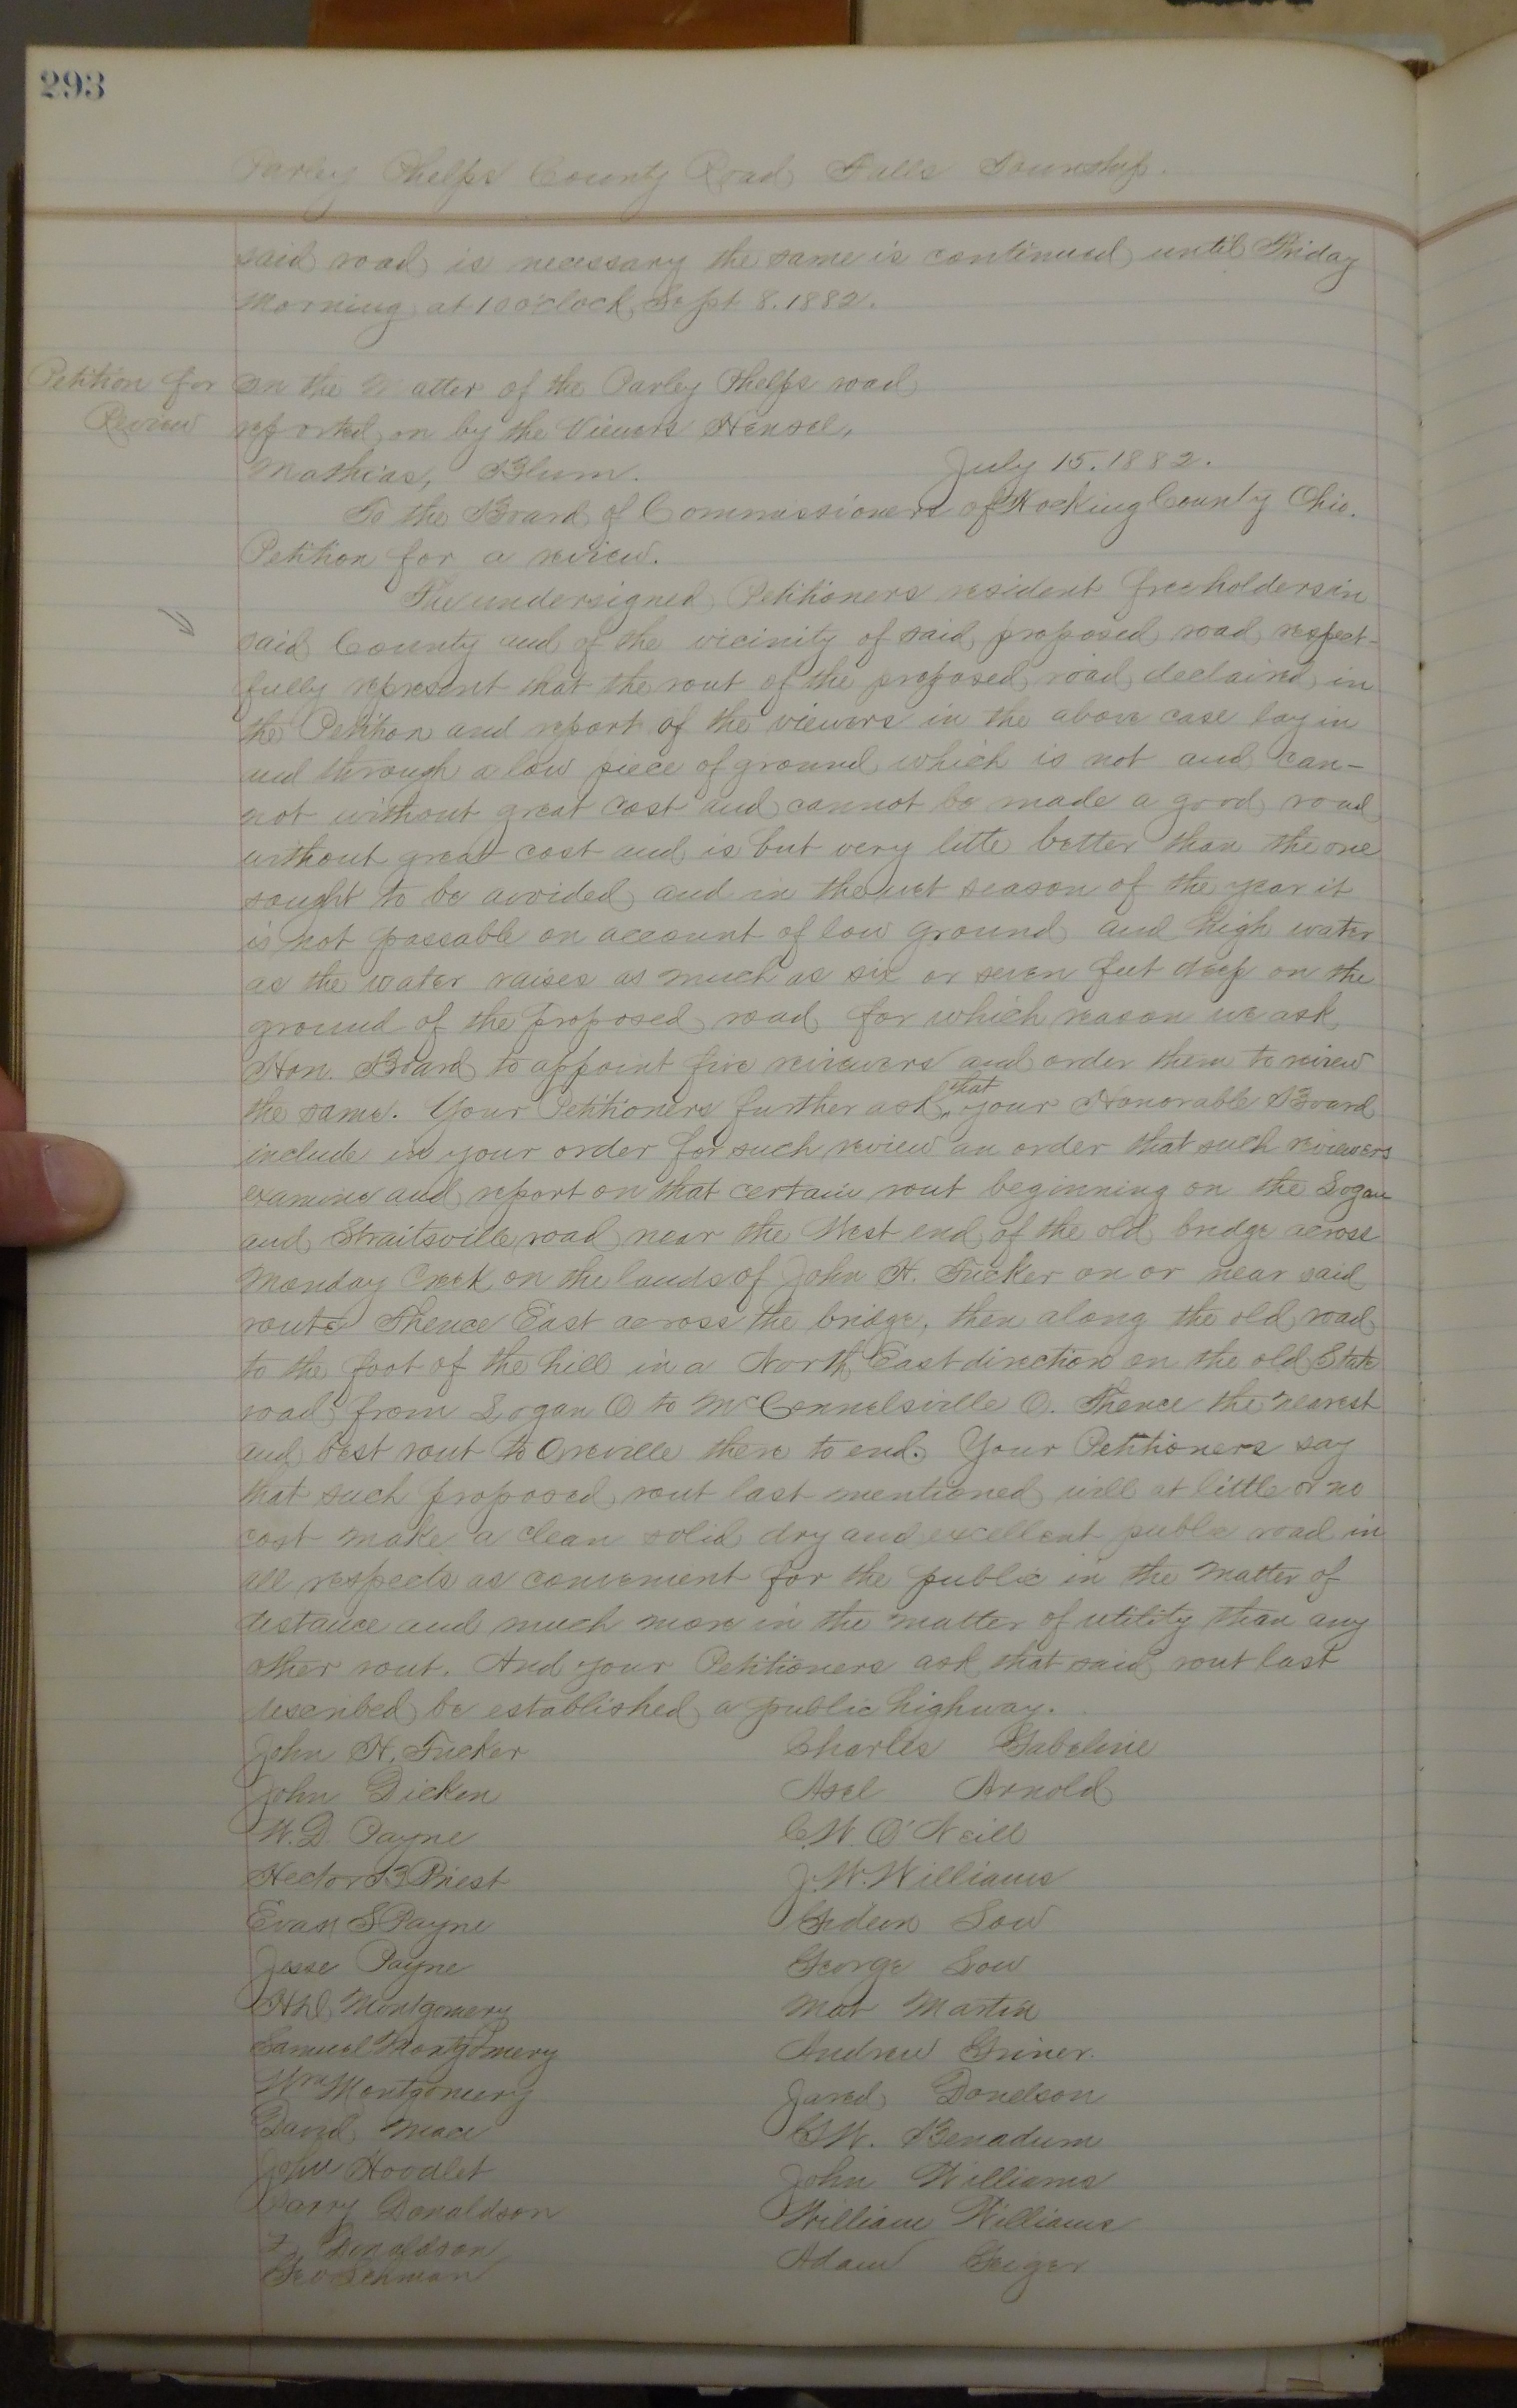 293
Parley Phelps County Road Falls Township.
said road is necessary the same is continued until Friday
Morning at 10 o'clock Sept 8. 1882.
Petition for
Review
In the Matter of the Parley Phelps road
reported on by the Viewers Hensel,
Mathias, Blum.
July 15. 1882.
To the Board of Commissioners of Hocking County Ohio.
Petition for a review.
The undersigned Petitioners resident freeholders in
said County and of the vicinity of said proposed road respect-
fully represent that the rout of the proposed road declaired in
the Petition and report of the viewers in the above case lay in
and through a low piece of ground which is not and can-
not without great cost and cannot be made a good road
without great cost and is but very litte better than the one
sought to be avoided and in the wet season of the year it
is not passable on account of low ground and high water
as the water raises as much as six or seven feet deep on the
ground of the proposed road for which reason we ask
Hon. Board to appoint five reviewers and order them to review
the same. Your Petitioners further ask that your Honorable Board
include in your order for such review an order that such reviewers
examine and report on that certain rout beginning on the Logan
and Straitsville road near the West end of the old bridge across
Monday Creek on the lands of John H. Tucker on or near said
route Thence East across the bridge, then along the old road
to the foot of the hill in a North East direction on the old State
road from Logan O to McConnelsville O. Thence the nearest
and best rout to Oreville there to end. Your Petitioners say
that such proposed rout last mentioned will at little or no
cost make a clean solid dry and excellent public road in
all respects as convenient for the public in the matter of
distance and much more in the matter of utility than any
other rout. And your Petitioners ask that said rout last
described be established a public highway.
John H. Tucker
Charles Gabeline
John Dicken
Asel Arnold
W. D. Payne
C. W. O'Neill
Hector B Priest
J. W. Williams
Evan S Payne
Gideon Low
Jesse Payne
George Low
Montgomery
Mat Martin
Samuel Montgomery
Andrew Griner.
Wm Montgomery
Jared Donelson
David Mace
W. Benadum
John Hoodlet
John Williams
Harry Donaldson
William Williams
Donaldson
Adam Geiger
Geo Lehman